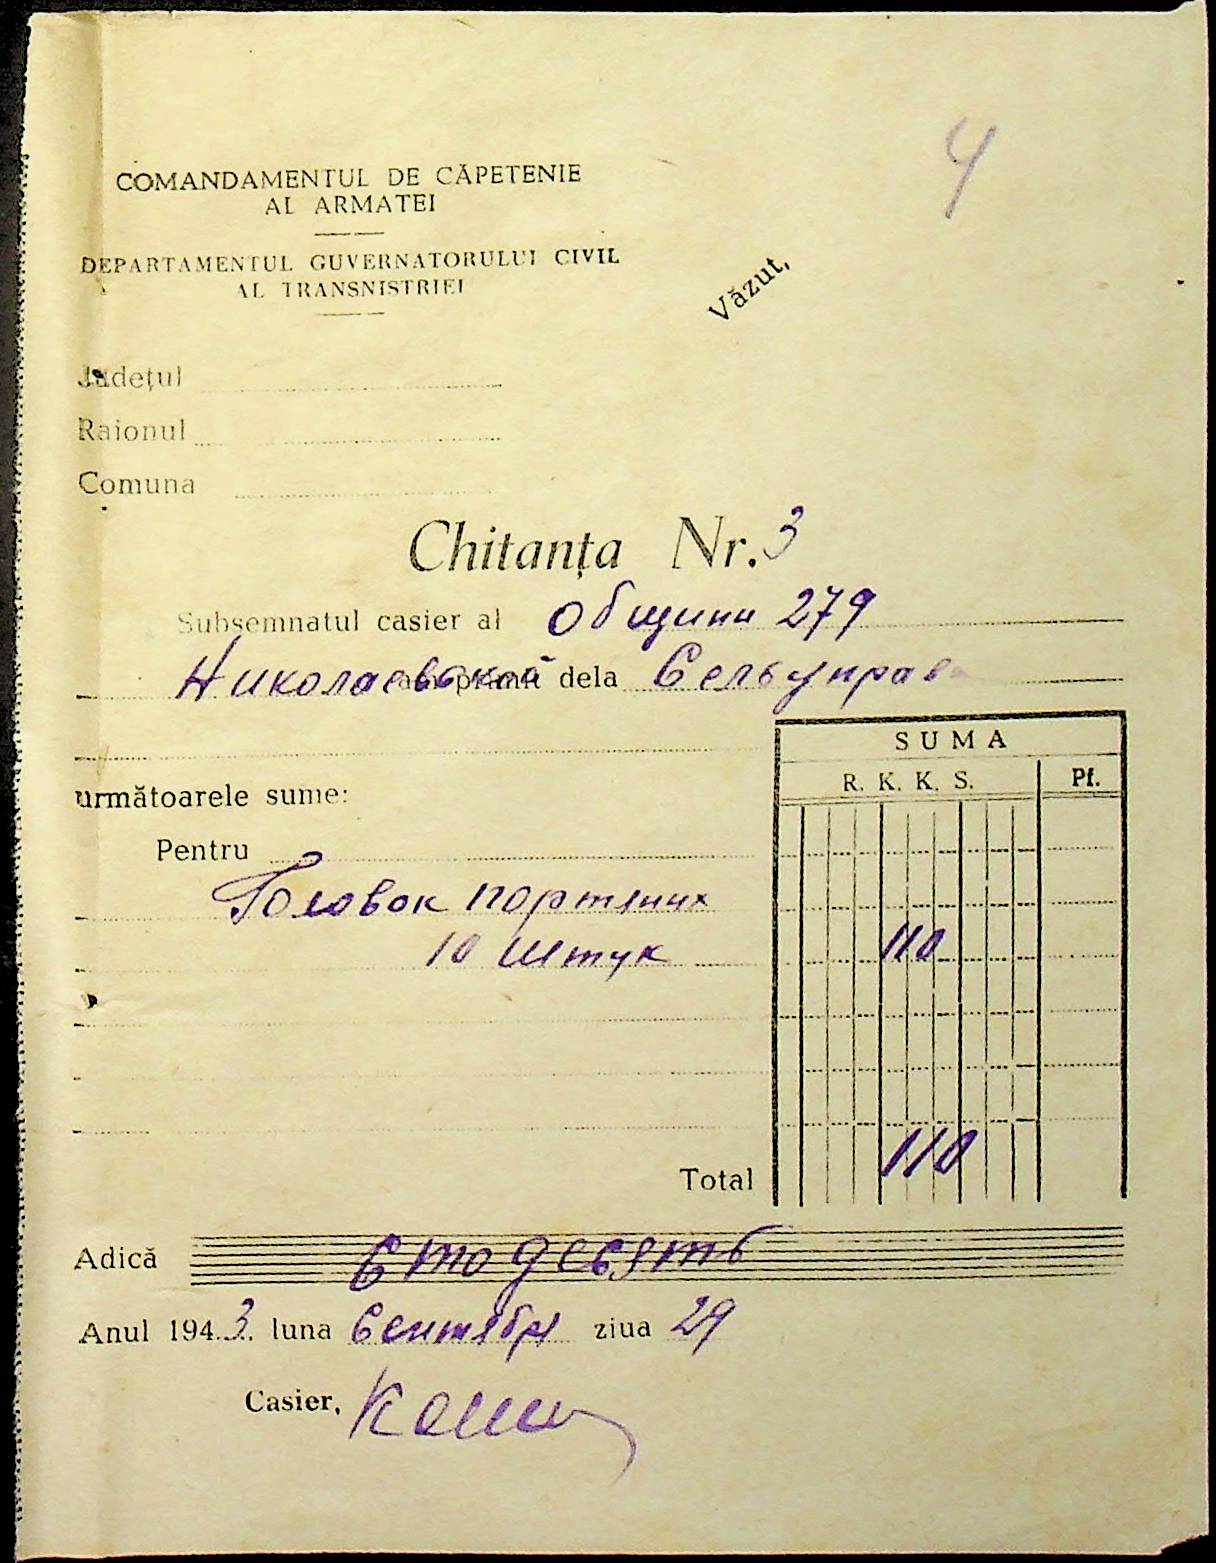 4
COMANDAMENTUL DE CĂPETENIE
AL ARMATEI
DEPARTAMENTUL GUVERNATORULUI CIVIL
AL TRANSNISTRIEI
Văzut,
Județul
Raionul
Comuna
Chitanța Nr. 3
Subsemnatul casier al Общини 279
Николаевской am primit dela Сельуправ
SUMA
R. K. K. S. Pf.
următoarele sume:
Pentru
Головок портяних
10 штук 110
Total 110
Adică Сто десять
Anul 1943. luna Сентября ziua 29
Casier,